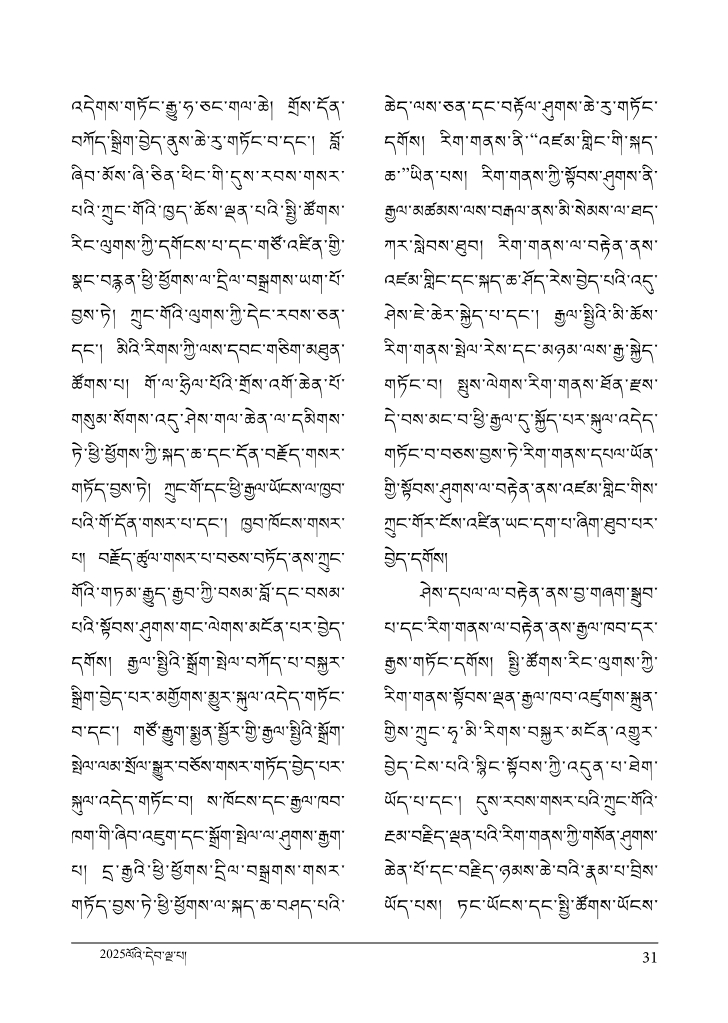 འདེགས་གཏོང་རྒྱུ་ཧ་ཅང་གལ་ཆེ། གྲོས་དོན་
བཀོད་སྒྲིག་བྱེད་ནུས་ཆེ་རུ་གཏོང་བ་དང་། བློ་
ཞིབ་མོས་ཞི་ཅིན་ཕིང་གི་དུས་རབས་གསར་
པའི་ཀྲུང་གོའི་ཁྱད་ཆོས་ལྡན་པའི་སྤྱི་ཚོགས་
རིང་ལུགས་ཀྱི་དགོངས་པ་དང་གཙོ་འཛིན་གྱི་
སྣང་བརྙན་ཕྱི་ཕྱོགས་ལ་དྲིལ་བསྒྲགས་ཡག་པོ་
བྱས་ཏེ། ཀྲུང་གོའི་ལུགས་ཀྱི་དེང་རབས་ཅན་
དང་། མིའི་རིགས་ཀྱི་ལས་དབང་གཅིག་མཐུན་
ཚོགས་པ། གོ་ལ་ཧྲིལ་པོའི་གྲོས་འགོ་ཆེན་པོ་
གསུམ་སོགས་འདུ་ཤེས་གལ་ཆེན་ལ་དམིགས་
ཏེ་ཕྱི་ཕྱོགས་ཀྱི་སྐད་ཆ་དང་དོན་བརྗོད་གསར་
གཏོད་བྱས་ཏེ། ཀྲུང་གོ་དང་ཕྱི་རྒྱལ་ཡོངས་ལ་ཁྱབ་
པའི་གོ་དོན་གསར་པ་དང་། ཁྱབ་ཁོངས་གསར་
པ། བརྗོད་ཚུལ་གསར་པ་བཅས་བཏོད་ནས་ཀྲུང་
གོའི་གཏམ་རྒྱུད་རྒྱབ་ཀྱི་བསམ་བློ་དང་བསམ་
པའི་སྟོབས་ཤུགས་གང་ལེགས་མངོན་པར་བྱེད་
དགོས། རྒྱལ་སྤྱིའི་སྒྲོག་སྤེལ་བཀོད་པ་བསྐྱར་
སྒྲིག་བྱེད་པར་མགྱོགས་མྱུར་སྐུལ་འདེད་གཏོང་
བ་དང་། གཙོ་རྒྱུག་སྨྱན་སྦྱོར་གྱི་རྒྱལ་སྤྱིའི་སྒྲོག་
སྤེལ་ལམ་སྲོལ་སྒྱུར་བཅོས་གསར་གཏོད་བྱེད་པར་
སྐུལ་འདེད་གཏོང་བ། ས་ཁོངས་དང་རྒྱལ་ཁབ་
ཁག་གི་ཞིབ་འཇུག་དང་སྒྲོག་སྤེལ་ལ་ཤུགས་རྒྱག་
པ། དྲ་རྒྱའི་ཕྱི་ཕྱོགས་དྲིལ་བསྒྲགས་གསར་
གཏོད་བྱས་ཏེ་ཕྱི་ཕྱོགས་ལ་སྐད་ཆ་བཤད་པའི་
ཆེད་ལས་ཅན་དང་བརྟོལ་ཤུགས་ཆེ་རུ་གཏོང་
དགོས། རིག་གནས་ནི་“འཛམ་གླིང་གི་སྐད་
ཆ་”ཡིན་པས། རིག་གནས་ཀྱི་སྟོབས་ཤུགས་ནི་
རྒྱལ་མཚམས་ལས་བརྒལ་ནས་མི་སེམས་ལ་ཐད་
ཀར་སླེབས་ཐུབ། རིག་གནས་ལ་བརྟེན་ནས་
འཛམ་གླིང་དང་སྐད་ཆ་ཤོད་རེས་བྱེད་པའི་འདུ་
ཤེས་ཇེ་ཆེར་སྐྱེད་པ་དང་། རྒྱལ་སྤྱིའི་མི་ཆོས་
རིག་གནས་སྤེལ་རེས་དང་མཉམ་ལས་རྒྱ་སྐྱེད་
གཏོང་བ། སྤུས་ལེགས་རིག་གནས་ཐོན་རྫས་
དེ་བས་མང་བ་ཕྱི་རྒྱལ་དུ་སྐྱོད་པར་སྐུལ་འདེད་
གཏོང་བ་བཅས་བྱས་ཏེ་རིག་གནས་དཔལ་ཡོན་
གྱི་སྟོབས་ཤུགས་ལ་བརྟེན་ནས་འཛམ་གླིང་གིས་
ཀྲུང་གོར་ངོས་འཛིན་ཡང་དག་པ་ཞིག་ཐུབ་པར་
བྱེད་དགོས།
ཤེས་དཔལ་ལ་བརྟེན་ནས་བྱ་གཞག་སྒྲུབ་
པ་དང་རིག་གནས་ལ་བརྟེན་ནས་རྒྱལ་ཁབ་དར་
རྒྱས་གཏོང་དགོས། སྤྱི་ཚོགས་རིང་ལུགས་ཀྱི་
རིག་གནས་སྟོབས་ལྡན་རྒྱལ་ཁབ་འཛུགས་སྐྲུན་
གྱིས་ཀྲུང་ཧྭ་མི་རིགས་བསྐྱར་མངོན་འགྱུར་
བྱེད་ངེས་པའི་སྙིང་སྟོབས་ཀྱི་འདུན་པ་ཐེག་
ཡོད་པ་དང་། དུས་རབས་གསར་པའི་ཀྲུང་གོའི་
རྔམ་བརྗིད་ལྡན་པའི་རིག་གནས་ཀྱི་གསོན་ཤུགས་
ཆེན་པོ་དང་བརྗིད་ཉམས་ཆེ་བའི་རྣམ་པ་བྲིས་
ཡོད་པས། ཏང་ཡོངས་དང་སྤྱི་ཚོགས་ཡོངས་
2025ལོའི་དེབ་ལྔ་པ།
31